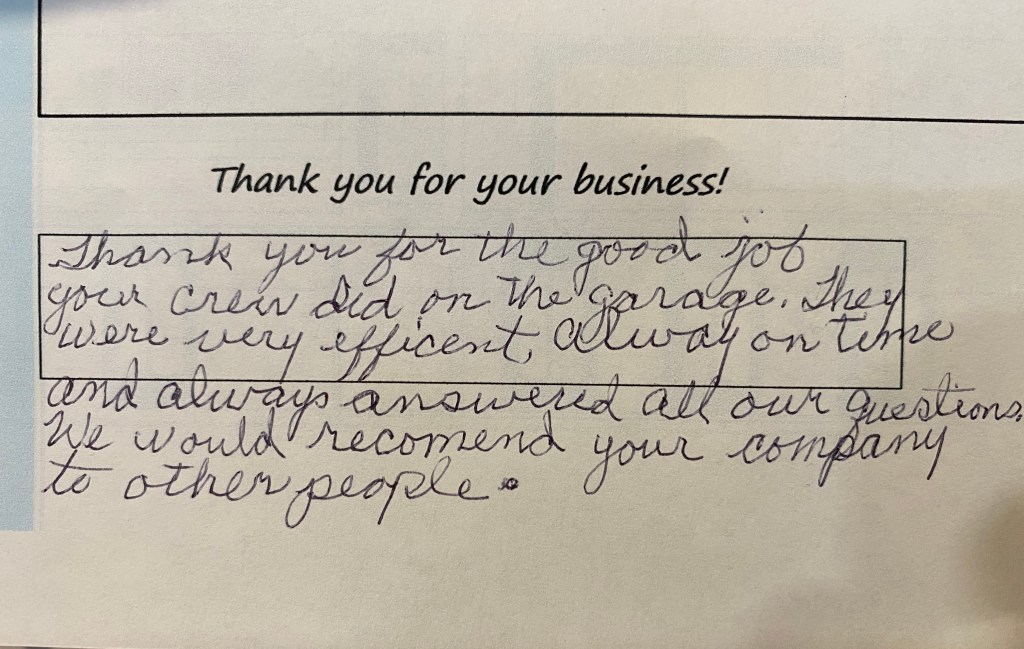 Thank you for your business!
Thank you for the good job
your crew did on the garage. They
were very efficent, alway on time
and always answered all our questions.
We would recomend your company
to other people.